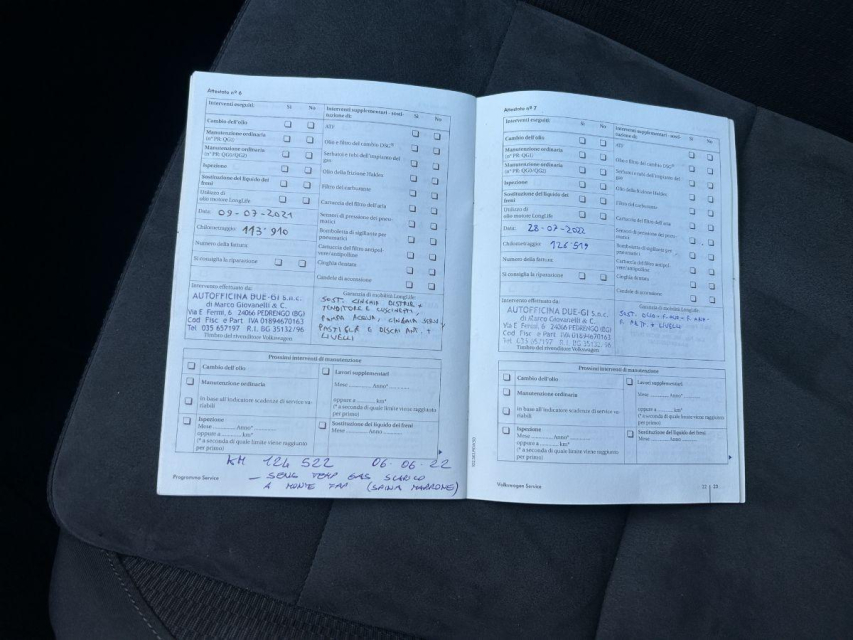 Attestato n° 6
Interventi eseguiti: Sì No
Cambio dell'olio
Manutenzione ordinaria
(n° PR: QG1)
Manutenzione ordinaria
(n° PR: QG0/QG2)
Ispezione
Sostituzione del liquido dei
freni
Utilizzo di
olio motore LongLife
Data: 09-07-2021
Chilometraggio: 113'910
Numero della fattura
Si consiglia la riparazione
Intervento effettuato da:
AUTOFFICINA DUE-GI S.n.c.
di Marco Giovanelli & C.
Via E. Fermi, 6 24066 PEDRENGO (BG)
Cod. Fisc. e Part. IVA 01894670163
Tel. 035 657197 R.I. BG 35132/96
Timbro del rivenditore Volkswagen
Interventi supplementari - Sì No
ATF
Olio e filtro del cambio DSG
Serbatoio e rete dell'impianto del
gas
Olio della frizione Haldex
Filtro del carburante
Cartuccia del filtro dell'aria
Sensori di pressione dei pneu-
matici
Bomboletta di sigillante per
pneumatici
Cartuccia del filtro antipol-
vere/antipolline
Cinghia dentata
Candele di accensione
Garanzia di mobilità LongLife
SOST. CINGHIA DISTRIB. +
TENDITORE E CUSCINETTI,
POMPA ACQUA, CINGHIA SERV.,
PASTIGLIE E DISCHI ANT. +
LIVELLI
Prossimi interventi di manutenzione
Cambio dell'olio
Manutenzione ordinaria
In base all'indicatore scadenza di service va-
riabili
Ispezione
Mese Anno*
oppure a km*
(* a seconda di quale limite viene raggiunto
per primo)
Lavori supplementari
Mese Anno*
oppure a km*
(* a seconda di quale limite viene raggiunto
per primo)
Sostituzione del liquido dei freni
Mese Anno
KM 124 522 06.06.22
- SENS TEMP GAS SCARICO
A MONTE FAP (SPINA MARRONE)
Programma Service
Attestato n° 7
Interventi eseguiti: Sì No
Cambio dell'olio
Manutenzione ordinaria
(n° PR: QG1)
Manutenzione ordinaria
(n° PR: QG0/QG2)
Ispezione
Sostituzione del liquido dei
freni
Utilizzo di
olio motore LongLife
Data: 28-07-2022
Chilometraggio: 126'519
Numero della fattura
Si consiglia la riparazione
Intervento effettuato da:
AUTOFFICINA DUE-GI S.n.c.
di Marco Giovanelli & C.
Via E. Fermi, 6 24066 PEDRENGO (BG)
Cod. Fisc. e Part. IVA 01894670163
Tel. 035 657197 R.I. BG 35132/96
Timbro del rivenditore Volkswagen
Interventi supplementari - Sì No
ATF
Olio e filtro del cambio DSG
Serbatoio e rete dell'impianto del
gas
Olio della frizione Haldex
Filtro del carburante
Cartuccia del filtro dell'aria
Sensori di pressione dei pneu-
matici
Bomboletta di sigillante per
pneumatici
Cartuccia del filtro antipol-
vere/antipolline
Cinghia dentata
Candele di accensione
Garanzia di mobilità LongLife
SOST. OLIO
+ LIVELLI
Prossimi interventi di manutenzione
Cambio dell'olio
Manutenzione ordinaria
In base all'indicatore scadenza di service va-
riabili
Ispezione
Mese Anno*
oppure a km*
(* a seconda di quale limite viene raggiunto
per primo)
Lavori supplementari
Mese Anno*
oppure a km*
(* a seconda di quale limite viene raggiunto
per primo)
Sostituzione del liquido dei freni
Mese Anno
Volkswagen Service